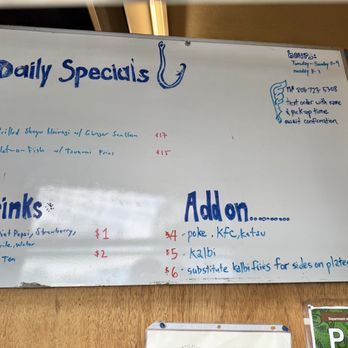 Daily Specials
Tuesday-Sunday 8-9
Monday 8-2
text order with name
& pick up time
await confirmation
Grilled Shoyu w/ Ginger Scallion $17
w/ Tsunami Fries $15
Drinks
Add on.........
Pepsi, Strawberry, $1
Water
Tea $2
$4 - poke, KFC, Katsu
$5 - Kalbi
$6 - substitute kalbi fries for sides on plates
P